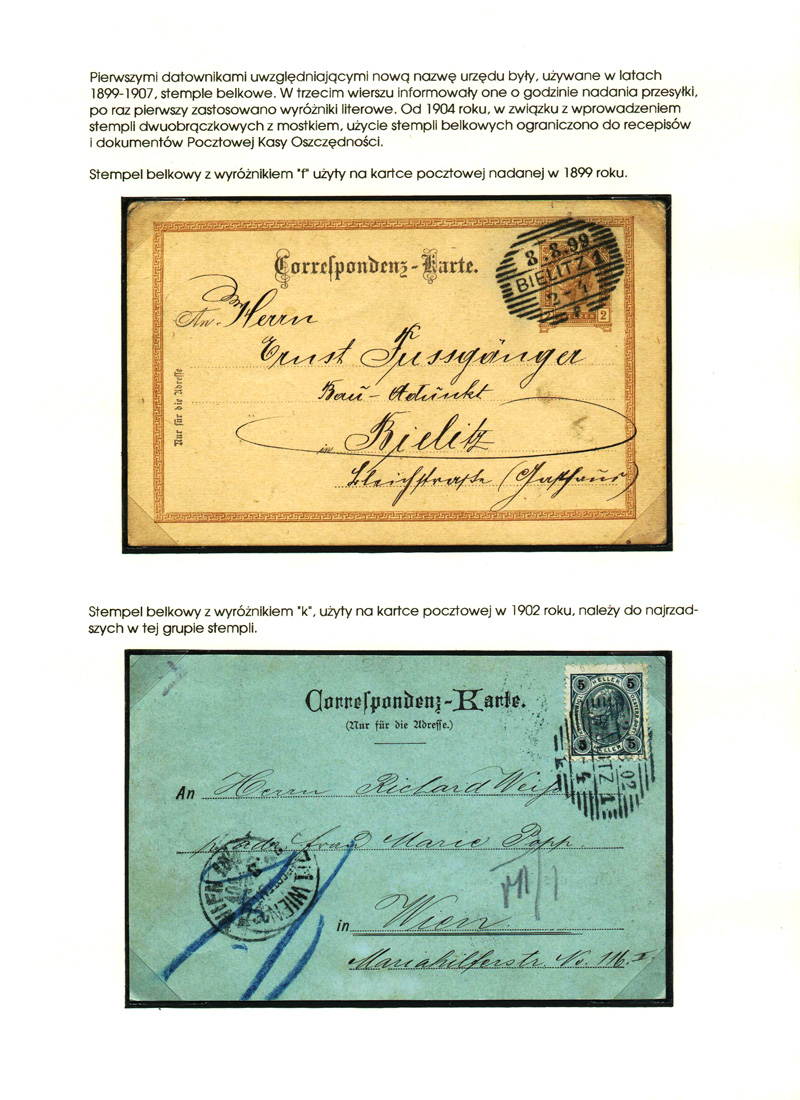 Pierwszymi datownikami uwzględniającymi nową nazwę urzędu były, używane w latach
1899-1907, stemple belkowe. W trzecim wierszu informowały one o godzinie nadania przesyłki,
po raz pierwszy zastosowano wyróżniki literowe. Od 1904 roku, w związku z wprowadzeniem
stempli dwuobrączkowych z mostkiem, użycie stempli belkowych ograniczono do recepisów
i dokumentów Pocztowej Kasy Oszczędności.
Stempel belkowy z wyróżnikiem "f" użyty na kartce pocztowej nadanej w 1899 roku.
8. 8.99
BIELITZ 1
2
Correspondenz-Karte.
An Herrn
Ernst Fussgänger
Bau-Adunkt
in Bielitz
Bleichstraße (Gasthaus)
Nur für die Adresse
Stempel belkowy z wyróżnikiem "k", użyty na kartce pocztowej w 1902 roku, należy do najrzad-
szych w tej grupie stempli.
5 HELLER 5
5 HELLER 5
Correspondenz-Karte.
(Nur für die Adresse.)
An Herrn Richard Weiß
frau Marie Popp
WIEN
in Wien
Mariahilferstr No. 116